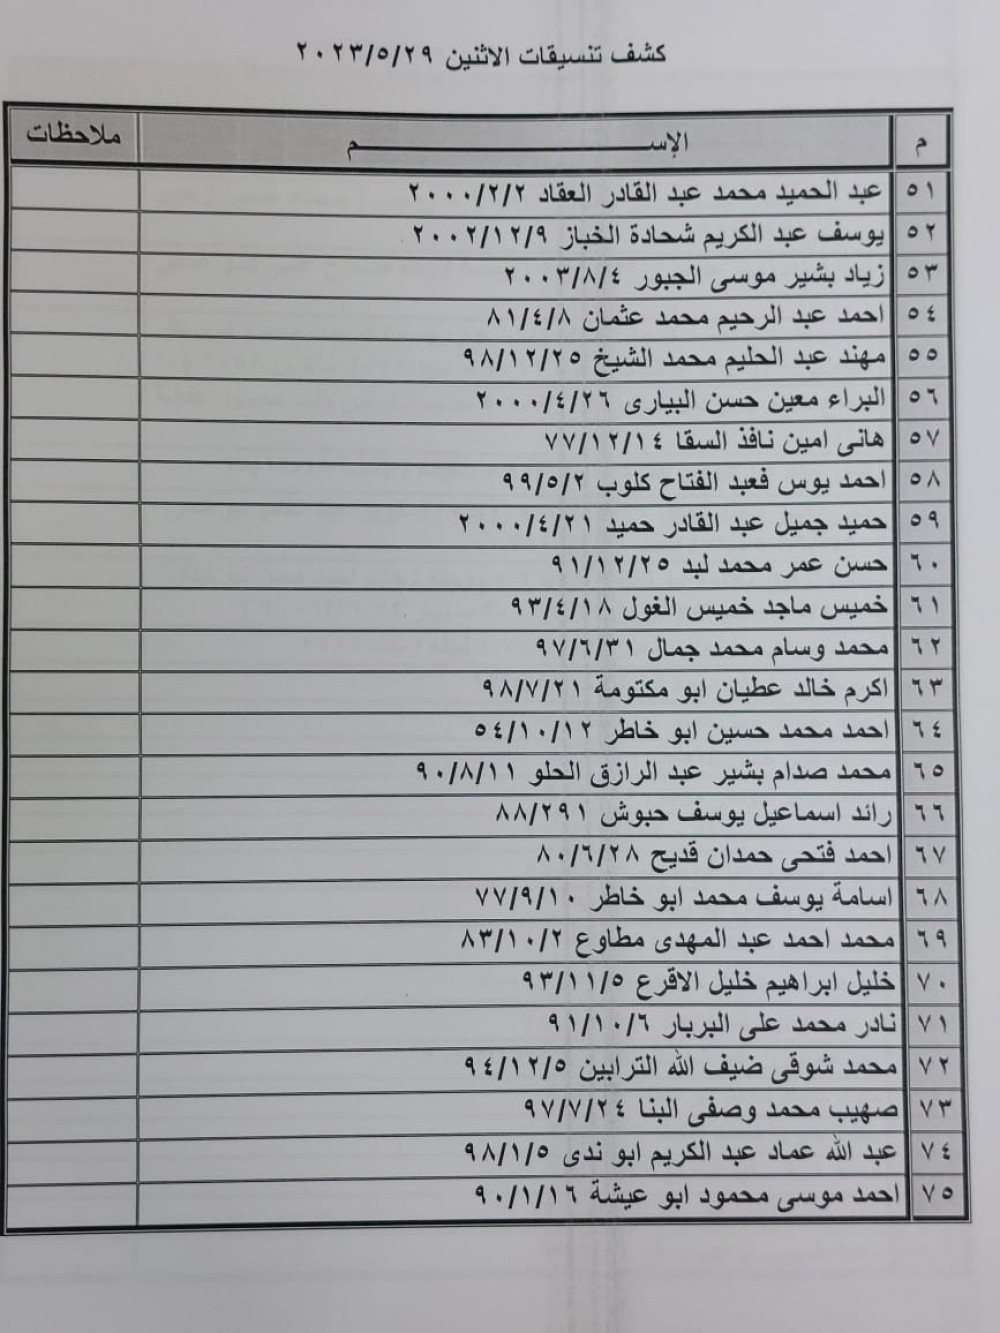 كشف تنسيقات الاثنين ٢٠٢٣/٥/٢٩
م الإســـــــــــــــــم ملاحظات
٥١ عبد الحميد محمد عبد القادر العقاد ٢٠٠٠/٢/٢
٥٢ يوسف عبد الكريم شحادة الخباز ٢٠٠٢/١٢/٩
٥٣ زياد بشير موسى الجبور ٢٠٠٣/٨/٤
٥٤ احمد عبد الرحيم محمد عثمان ٨١/٤/٨
٥٥ مهند عبد الحليم محمد الشيخ ٩٨/١٢/٢٥
٥٦ البراء معين حسن البيارى ٢٠٠٠/٤/٢٦
٥٧ هانى امين نافذ السقا ٧٧/١٢/١٤
٥٨ احمد يوس فعبد الفتاح كلوب ٩٩/٥/٢
٥٩ حميد جميل عبد القادر حميد ٢٠٠٠/٤/٢١
٦٠ حسن عمر محمد لبد ٩١/١٢/٢٥
٦١ خميس ماجد خميس الغول ٩٣/٤/١٨
٦٢ محمد وسام محمد جمال ٩٧/٦/٣١
٦٣ اكرم خالد عطيان ابو مكتومة ٩٨/٧/٢١
٦٤ احمد محمد حسين ابو خاطر ٥٤/١٠/١٢
٦٥ محمد صدام بشير عبد الرازق الحلو ٩٠/٨/١١
٦٦ رائد اسماعيل يوسف حبوش ٨٨/٢٩١
٦٧ احمد فتحى حمدان قديح ٨٠/٦/٢٨
٦٨ اسامة يوسف محمد ابو خاطر ٧٧/٩/١٠
٦٩ محمد احمد عبد المهدى مطاوع ٨٣/١٠/٢
٧٠ خليل ابراهيم خليل الاقرع ٩٣/١١/٥
٧١ نادر محمد على البربار ٩١/١٠/٦
٧٢ محمد شوقى ضيف الله الترابين ٩٤/١٢/٥
٧٣ صهيب محمد وصفى البنا ٩٧/٧/٢٤
٧٤ عبد الله عماد عبد الكريم ابو ندى ٩٨/١/٥
٧٥ احمد موسى محمود ابو عيشة ٩٠/١/١٦